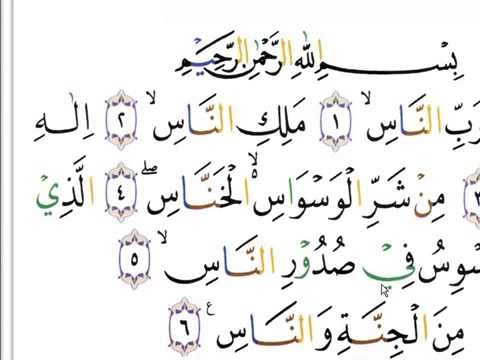 بِسْمِ اللهِ الرَّحْمٰنِ الرَّحِيْمِ
رَبِّ النَّاسِ ۙ ﴿١﴾ مَلِكِ النَّاسِ ۙ ﴿٢﴾ اِلٰهِ
﴿٣﴾ مِنْ شَرِّ الْوَسْوَاسِ ەۙ الْخَنَّاسِ ۖ ﴿٤﴾ الَّذِيْ
سْوِسُ فِيْ صُدُوْرِ النَّاسِ ۙ ﴿٥﴾
مِنَ الْجِنَّةِ وَالنَّاسِ ع ﴿٦﴾